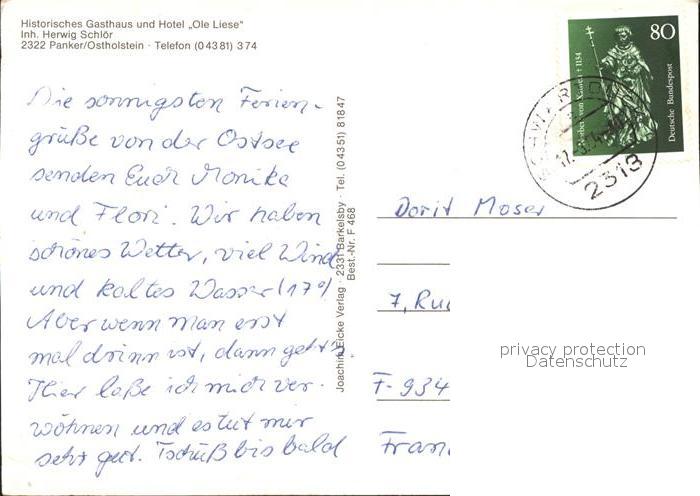 Historisches Gasthaus und Hotel „Ole Liese"
Inh. Herwig Schlör
2322 Panker/Ostholstein · Telefon (0 43 81) 3 74
80
Deutsche Bundespost
von Xanten † 1134
2313
Die sonnigsten Ferien-
grüße von der Ostsee
senden Euch Monika
und Flori. Wir haben
schönes Wetter, viel Wind
und kaltes Wasser (17°)
Aber wenn man erst
mal drinn ist, dann geht's.
Hier laße ich mich ver-
wöhnen und es tut mir
sehr gut. Tschüß bis bald
Joachim Eicke Verlag · 2331 Barkelsby · Tel. (0 43 51) 8 18 47
Best.-Nr. F 468
Dorit Moser
7, Rue
F-934
Fran
privacy protection
Datenschutz